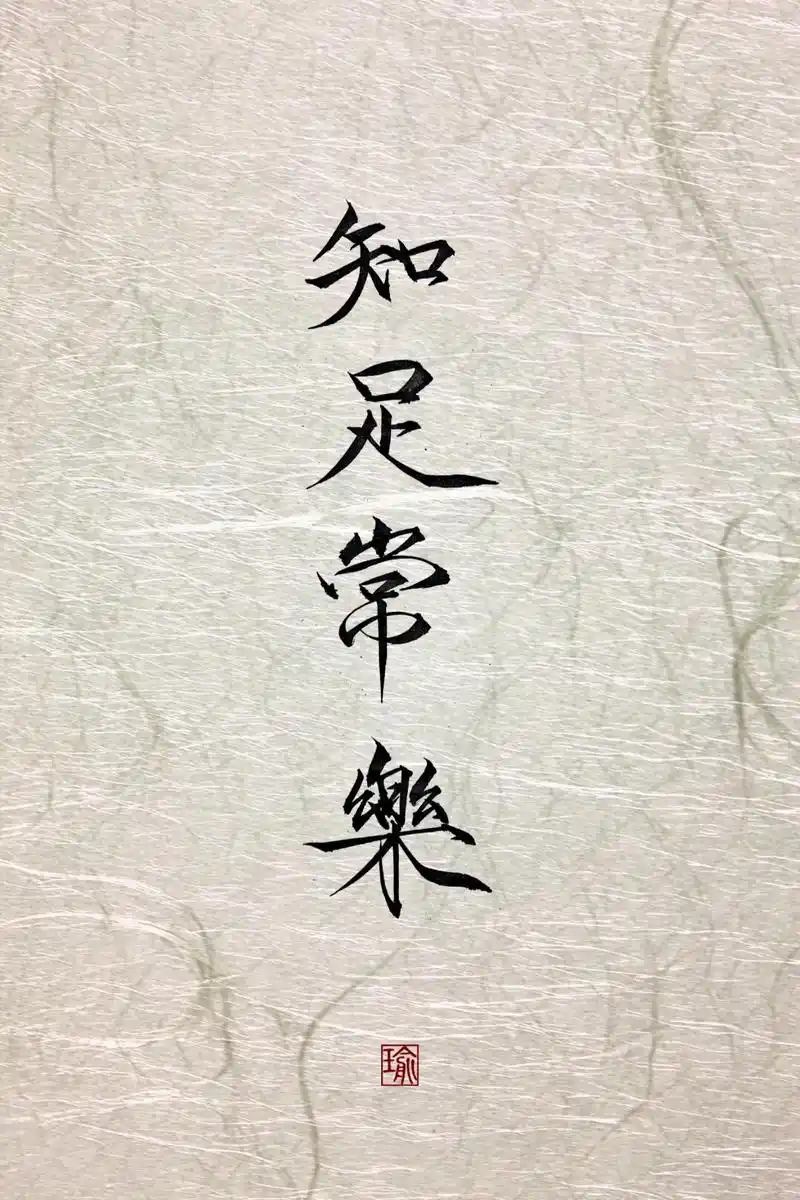 知足常樂
瑜